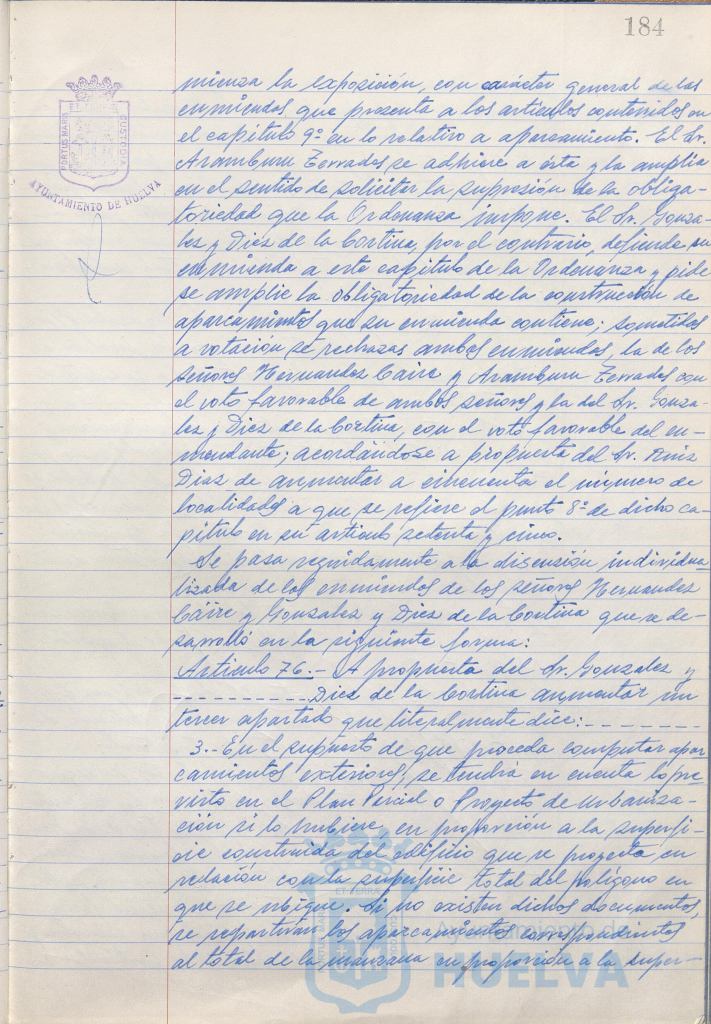 184
PORTUS MARIS
CUSTODIA
AYUNTAMIENTO DE HUELVA
mienza la exposición, con carácter general de las
enmiendas que presenta a los artículos contenidos en
el capítulo 9º en lo relativo a aparcamiento. El Sr.
Aramburu Terrades se adhiere a ésta y la amplia
en el sentido de solicitar la supresión de la obliga-
toriedad que la Ordenanza impone. El Sr. Gonza-
lez y Diez de la Cortina, por el contrario, defiende su
enmienda a este capítulo de la Ordenanza y pide
se amplie la obligatoriedad de la construcción de
aparcamientos que su enmienda contiene; sometidas
a votación se rechazas ambas enmiendas, la de los
señores Hernandez Caire y Aramburu Terrades con
el voto favorable de ambos señores y la del Sr. Gonza-
lez y Diez de la Cortina, con el voto favorable del en-
mendante; acordándose a propuesta del Sr. Ruiz
Diaz de aumentar a cincuenta el número de
localidades a que se refiere el punto 8º de dicho ca-
pítulo en su artículo setenta y cinco.
Se pasa seguidamente a la discusión individua-
lizada de las enmiendas de los señores Hernandez
Caire y Gonzalez y Diez de la Cortina que se de-
sarrolló en la siguiente forma:
Artículo 76.- A propuesta del Sr. Gonzalez y
- - - - - - - - - - Diez de la Cortina aumentar un
tercer apartado que literalmente dice: - - - - - - -
3.- En el supuesto de que proceda computar apar-
camientos exteriores, se tendrá en cuenta lo pre-
visto en el Plan Parcial o Proyecto de Urbaniza-
ción si lo hubiere, en proporción a la superfi-
cie construida del edificio que se proyecta en
relación con la superficie total del polígono en
que se ubique. Si no existen dichos documentos,
se repartirán los aparcamientos correspondientes
al total de la manzana en proporción a la super-
Ayuntamiento de
HUELVA